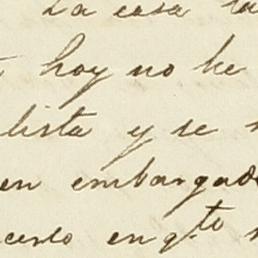 La casa
hoy no he
lista y se
en embargado
cerlo en gto